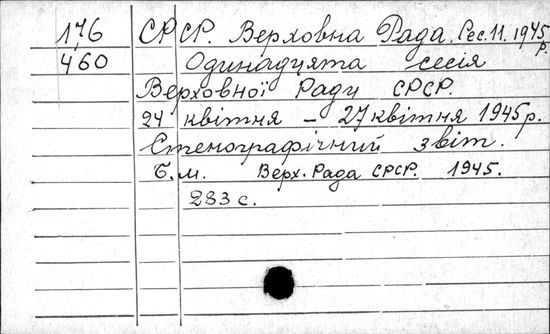 176 СРСР. Верховна Рада. Сес. 11. 1945 р.
460 Одинадцята сесія
Верховної Ради СРСР.
24 квітня – 27 квітня 1945 р.
Стенографічний звіт.
Б. м. Верх. Рада СРСР. 1945.
283 с.